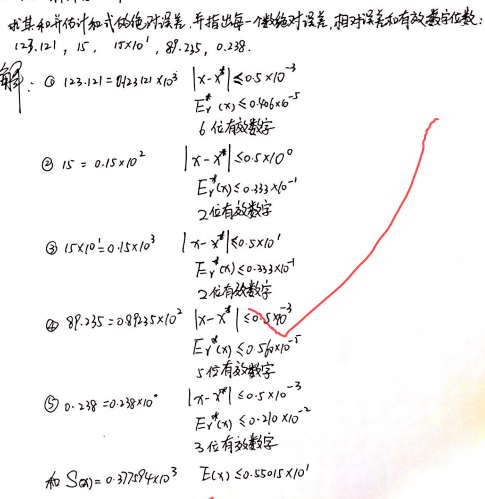 求其和并估计和式的绝对误差,并指出每一个数绝对误差,相对误差和有效数字位数:
123.121, 15, 15×10¹, 89.235, 0.238.
解: ① 123.121=0.123121×10³ |x-x*|≤0.5×10⁻³
Er*(x)≤0.406×10⁻⁵
6位有效数字
② 15=0.15×10² |x-x*|≤0.5×10⁰
Er*(x)≤0.333×10⁻¹
2位有效数字
③ 15×10¹=0.15×10³ |x-x*|≤0.5×10¹
Er*(x)≤0.333×10⁻¹
2位有效数字
④ 89.235=0.89235×10² |x-x*|≤0.5×10⁻³
Er*(x)≤0.560×10⁻⁵
5位有效数字
⑤ 0.238=0.238×10⁰ |x-x*|≤0.5×10⁻³
Er*(x)≤0.210×10⁻²
3位有效数字
和 S(x)=0.377594×10³ E(x)≤0.55015×10¹